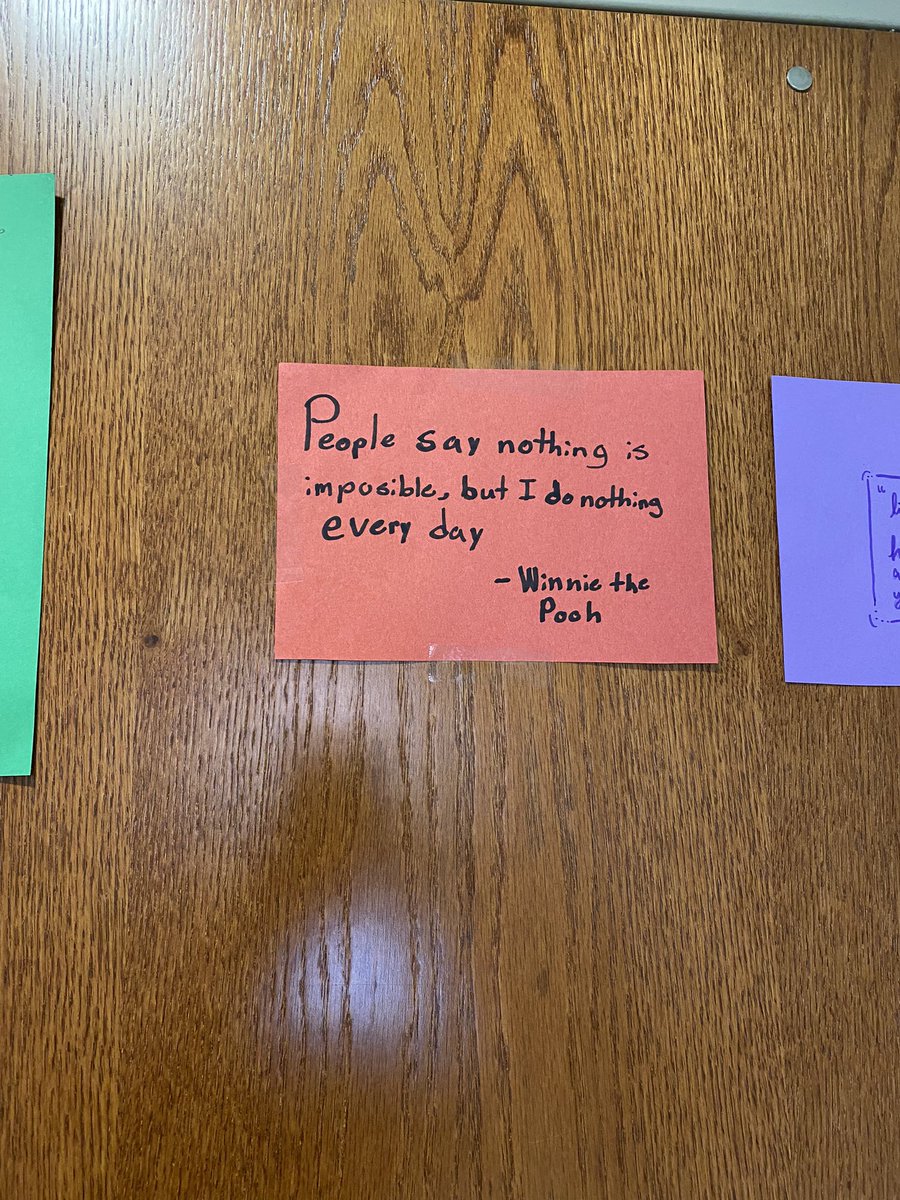 People say nothing is
imposible, but I do nothing
every day
- Winnie the
Pooh